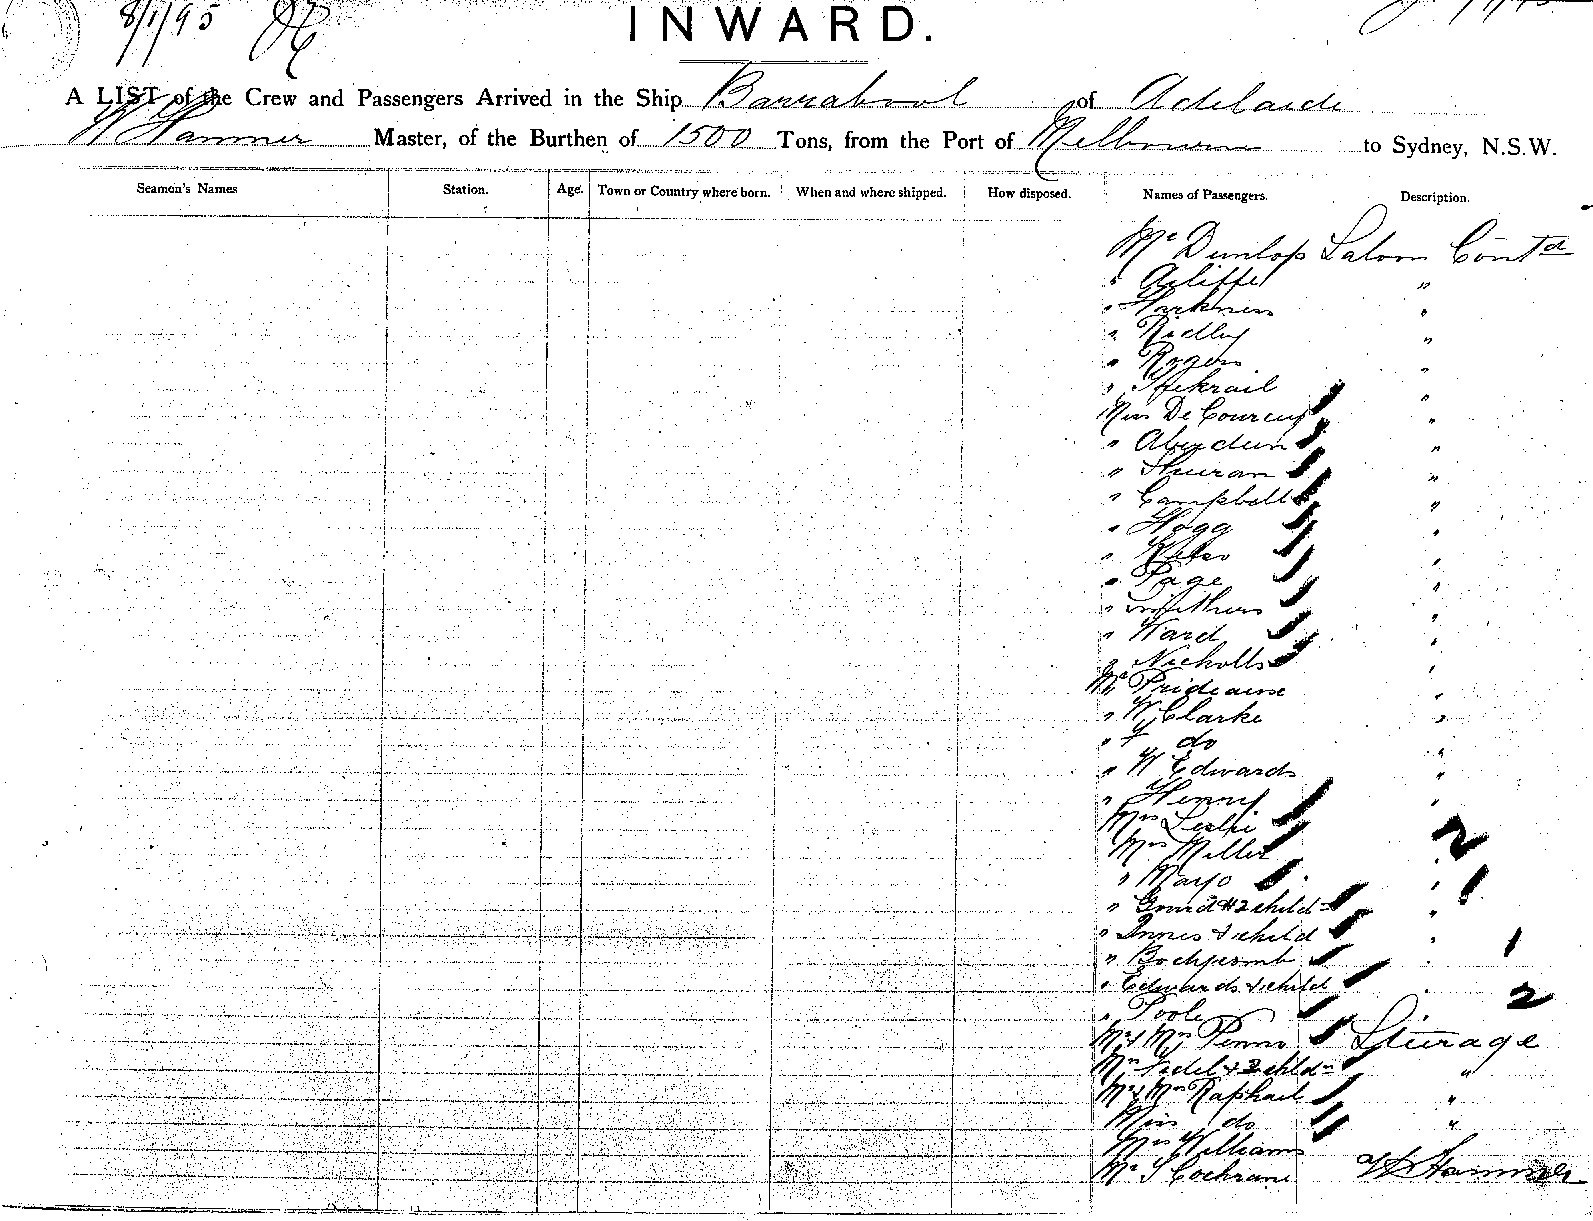 8/1/95
INWARD.
A LIST of the Crew and Passengers Arrived in the Ship Barrabool of Adelaide
W Hammer Master, of the Burthen of 1500 Tons, from the Port of Melbourne to Sydney, N.S.W.
Seamen's Names Station. Age. Town or Country where born. When and where shipped. How disposed. Names of Passengers. Description.
Mr Dunlop Saloon Contd
" "
" Harkness "
" Ridley "
" Rogers "
" "
Miss De Courcey "
" Aberdein "
" "
" Campbell "
" Hogg "
" Kelso "
" Page "
" "
" Ward "
" Nicholls "
Mr Prideaux "
" W Clarke "
" F do "
" W Edwards "
" Henry "
Mrs Leslie 2
Mrs Miller
" Mayo " 1
" 2 child "
" Innes & child " 1
" "
" Edwards & child " 2
" Poole
Mr & Mrs Penno Steerage
Mrs & 2 childn "
Mr & Mrs Raphael "
Miss do "
Mrs Williams
Mr J Cochrane W Hammer